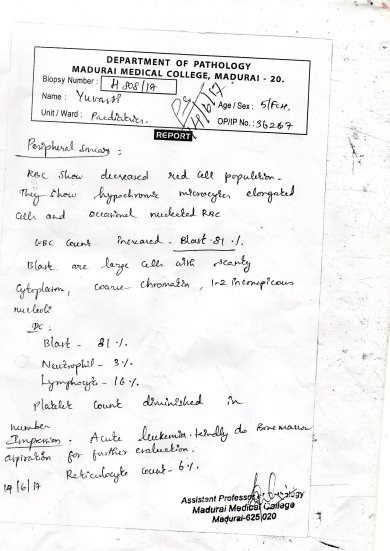 DEPARTMENT OF PATHOLOGY
MADURAI MEDICAL COLLEGE, MADURAI - 20.
Biopsy Number : H 808/17
Name : Yuvasri
Age / Sex : 5/FCH.
Unit / Ward : Paediatrics.
OP/IP No. : 36267
REPORT
Peripheral smear :
RBC show decreased red cell population.
They show hypochromic microcytes elongated
cells and occasional nucleated RBC
WBC Count increased. Blast 81 %.
Blast are large cells with scanty
cytoplasm, coarse chromatin, 1-2 inconspicous
nucleoli
DC :
Blast - 81 %.
Neutrophil - 3 %.
Lymphocyte - 16 %.
Platelet count diminished in
number
Impression : Acute leukemia. Kindly do Bone marrow
aspiration for further evaluation.
Reticulocyte count - 6 %.
19/6/17
Assistant Professor
Madurai Medical College
Madurai-625 020